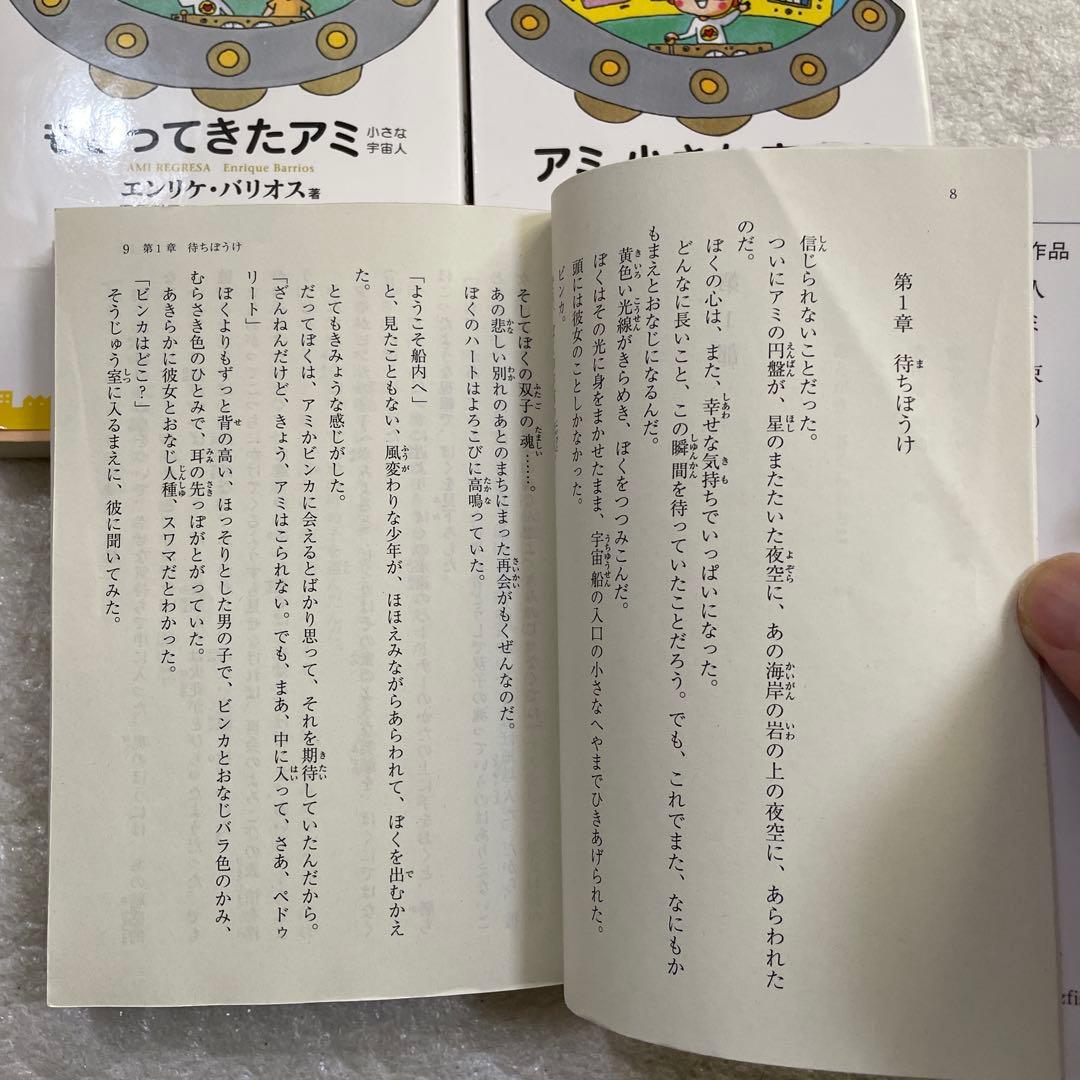 ってきたアミ 小さな宇宙人
AMI REGRESA Enrique Barrios
エンリケ・バリオス著
アミ 小さな
作品
8
第1章 待ちぼうけ
信じられないことだった。
ついにアミの円盤が、星のまたたいた夜空に、あの海岸の岩の上の夜空に、あらわれた
のだ。
ぼくの心は、また、幸せな気持ちでいっぱいになった。
どんなに長いこと、この瞬間を待っていたことだろう。でも、これでまた、なにもか
もまえとおなじになるんだ。
黄色い光線がきらめき、ぼくをつつみこんだ。
ぼくはその光に身をまかせたまま、宇宙船の入口の小さなへやまでひきあげられた。
頭には彼女のことしかなかった。
ビンカ。
9 第1章 待ちぼうけ
そしてぼくの双子の魂……。
あの悲しい別れのあとのまちにまった再会がもくぜんなのだ。
ぼくのハートはよろこびに高鳴っていた。
「ようこそ船内へ」
と、見たこともない、風変わりな少年が、ほほえみながらあらわれて、ぼくを出むかえ
た。
とてもきみょうな感じがした。
だってぼくは、アミかビンカに会えるとばかり思って、それを期待していたんだから。
「ざんねんだけど、きょう、アミはこられない。でも、まあ、中に入って、さあ、ペドゥ
リート」
ぼくよりもずっと背の高い、ほっそりとした男の子で、ビンカとおなじバラ色のかみ、
むらさき色のひとみで、耳の先っぽがとがっていた。
あきらかに彼女とおなじ人種、スワマだとわかった。
「ビンカはどこ？」
そうじゅう室に入るまえに、彼に聞いてみた。